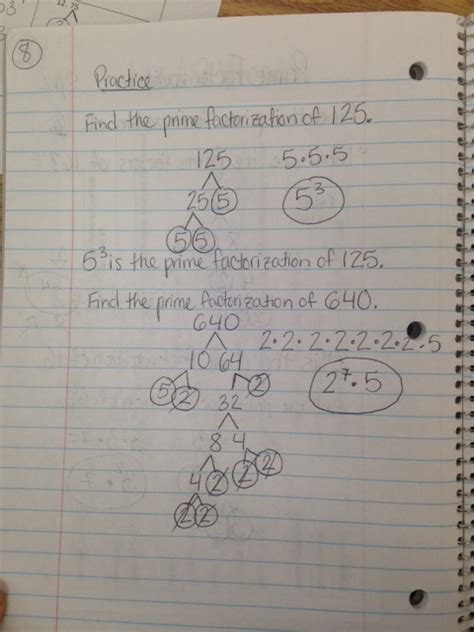 8
Practice
Find the prime factorization of 125.
125 5·5·5
25 5 5³
5 5
5³ is the prime factorization of 125.
Find the prime factorization of 640.
640
2·2·2·2·2·2·2·5
10 64
5 2 2 2⁷·5
32
8 4
4 2 2 2
2 2